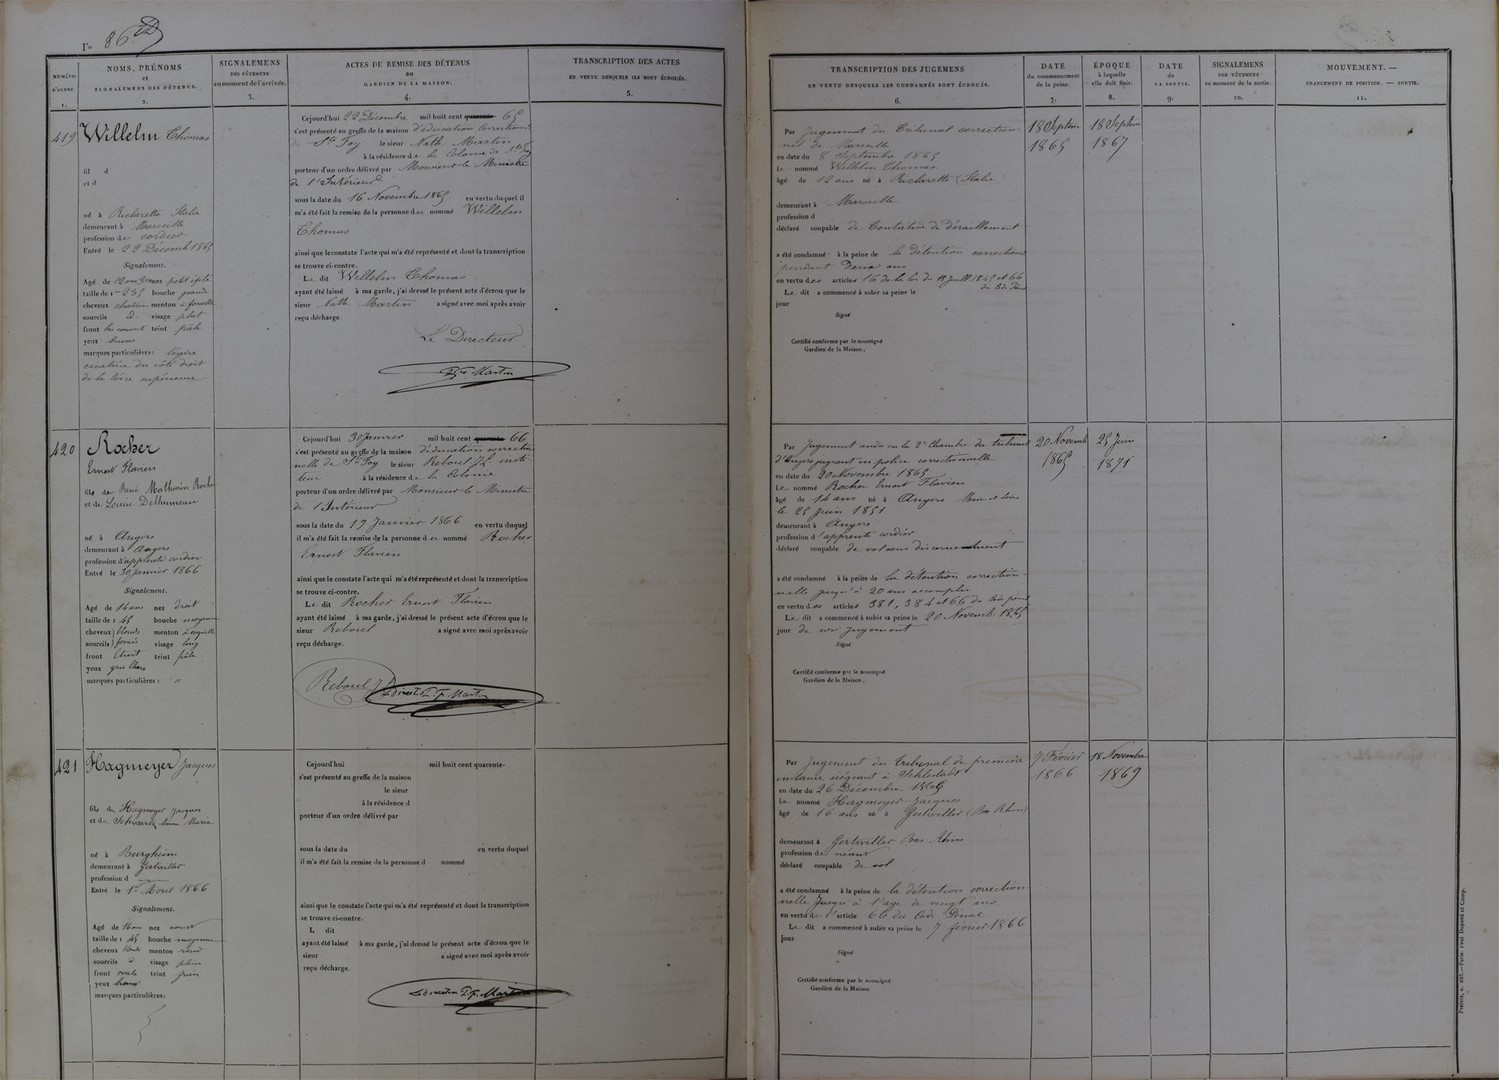 Fo 86
NUMÉRO D'ORDRE 1.
NOMS, PRÉNOMS et SIGNALEMENS DES DÉTENUS. 2.
SIGNALEMENS DES VÊTEMENS au moment de l'arrivée. 3.
ACTES DE REMISE DES DÉTENUS AU GARDIEN DE LA MAISON. 4.
TRANSCRIPTION DES ACTES EN VERTU DESQUELS ILS SONT ÉCROUÉS. 5.
TRANSCRIPTION DES JUGEMENS EN VERTU DESQUELS LES CONDAMNÉS SONT ÉCROUÉS. 6.
DATE du commencement de la peine. 7.
ÉPOQUE à laquelle elle doit finir. 8.
DATE DE LA SORTIE. 9.
SIGNALEMENS DES VÊTEMENS au moment de la sortie. 10.
MOUVEMENT. — CHANGEMENT DE POSITION. — SORTIE. 11.
419
Willelm Thomas
fil d
et d
né à Italie
demeurant à Marseille
profession de cordier
Entré le 22 Décemb 1865
Signalement.
bouche grande
cheveux menton à
sourcils d. visage plat
front teint pâle
yeux bruns
marques particulières : légère
cicatrice du côté droit
de la lèvre supérieure
Cejourd'hui 22 Décembre mil huit cent quarante 65
s'est présenté au greffe de la maison d'éducation
de Ste Foy le sieur Nath. Martin
à la résidence de la Colonie de
porteur d'un ordre délivré par Monsieur le Ministre
de l'Intérieur
sous la date du 16 Novembre 1865 en vertu duquel il
m'a été fait la remise de la personne du nommé Willelm
Thomas
ainsi que le constate l'acte qui m'a été représenté et dont la transcription
se trouve ci-contre.
Le dit Willelm Thomas
ayant été laissé à ma garde, j'ai dressé le présent acte d'écrou que le
sieur Nath. Martin a signé avec moi après avoir
reçu décharge.
Le Directeur
Martin
Par Jugement du Tribunal correction-
nel de Marseille
en date du 8 Septembre 1865
Le nommé Willelm Thomas
âgé de 12 ans né à (Italie
demeurant à Marseille
profession d
déclaré coupable de Tentative de déraillement
a été condamné à la peine de la détention correction
pendant Deux ans
en vertu des articles 16 de la loi du Juill. 1845 et 66
du
Le dit a commencé à subir sa peine le
jour
Signé
Certifié conforme par le soussigné
Gardien de la Maison,
18 Septbre
1865
18 Septbre
1867
420
Rocher
Ernest Flavien
fils de René Mathurin Rocher
et de Louise Delhumeau
né à Angers
demeurant à Angers
profession d'apprenti cordier
Entré le 30 janvier 1866
Signalement.
Agé de 14 ans nez droit
taille de 1 45 bouche moyenne
cheveux blonds menton à
sourcils visage long
front étroit teint pâle
yeux gris
marques particulières : "
Cejourd'hui 30 Janvier mil huit cent quarante 66
s'est présenté au greffe de la maison d'éducation correction
nelle de Ste Foy le sieur Reboul
à la résidence de la Colonie
porteur d'un ordre délivré par Monsieur le Ministre
de l'Intérieur
sous la date du 17 Janvier 1866 en vertu duquel
il m'a été fait la remise de la personne du nommé Rocher
Ernest Flavien
ainsi que le constate l'acte qui m'a été représenté et dont la transcription
se trouve ci-contre.
Le dit Rocher Ernest Flavien
ayant été laissé à ma garde, j'ai dressé le présent acte d'écrou que le
sieur Reboul a signé avec moi après avoir
reçu décharge.
Reboul
Martin
Par Jugement rendu en la 2e Chambre du tribunal
d'Angers jugeant en police correctionnelle
en date du 20 Novembre 1865
Le nommé Rocher Ernest Flavien
âgé de 14 ans né à Angers Maine et Loire
le 25 juin 1851
demeurant à Angers
profession d'apprenti cordier
déclaré coupable de vol sans discernement
a été condamné à la peine de la détention correction-
nelle jusqu'à 20 ans accomplis
en vertu des articles 381, 384 et 66 du Code pénal
Le dit a commencé à subir sa peine le 20 Novemb 1865
jour de son jugement
Signé
Certifié conforme par le soussigné
Gardien de la Maison,
20 Novemb
1865
25 Juin
1871
421
Hagmeyer Jacques
fils de Hagmeyer Jacques
et de Schwartz Marie
né à Burgheim
demeurant à Gertwiller
profession d
Entré le 1er Avril 1866
Signalement.
Agé de 16 ans nez court
taille de 1 45 bouche moyenne
cheveux blonds menton rond
sourcils d visage plein
front teint
yeux
marques particulières :
Cejourd'hui mil huit cent quarante-
s'est présenté au greffe de la maison
le sieur
à la résidence d
porteur d'un ordre délivré par
sous la date du en vertu duquel
il m'a été fait la remise de la personne d nommé
ainsi que le constate l'acte qui m'a été représenté et dont la transcription
se trouve ci-contre.
L dit
ayant été laissé à ma garde, j'ai dressé le présent acte d'écrou que le
sieur a signé avec moi après avoir
reçu décharge.
Le directeur Martin
Par Jugement du Tribunal de première
instance siégeant à Schlestadt
en date du 26 Décembre 1865
Le nommé Hagmeyer Jacques
âgé de 16 ans né à Gertwiller (Bas Rhin)
demeurant à Gertwiller Bas Rhin
profession de néant
déclaré coupable de vol
a été condamné à la peine de la détention correction-
nelle jusqu'à l'âge de vingt ans
en vertu de l'article 66 du Code Pénal
Le dit a commencé à subir sa peine le 7 février 1866
jour
Signé
Certifié conforme par le soussigné
Gardien de la Maison
7 Février
1866
18 Novembre
1869